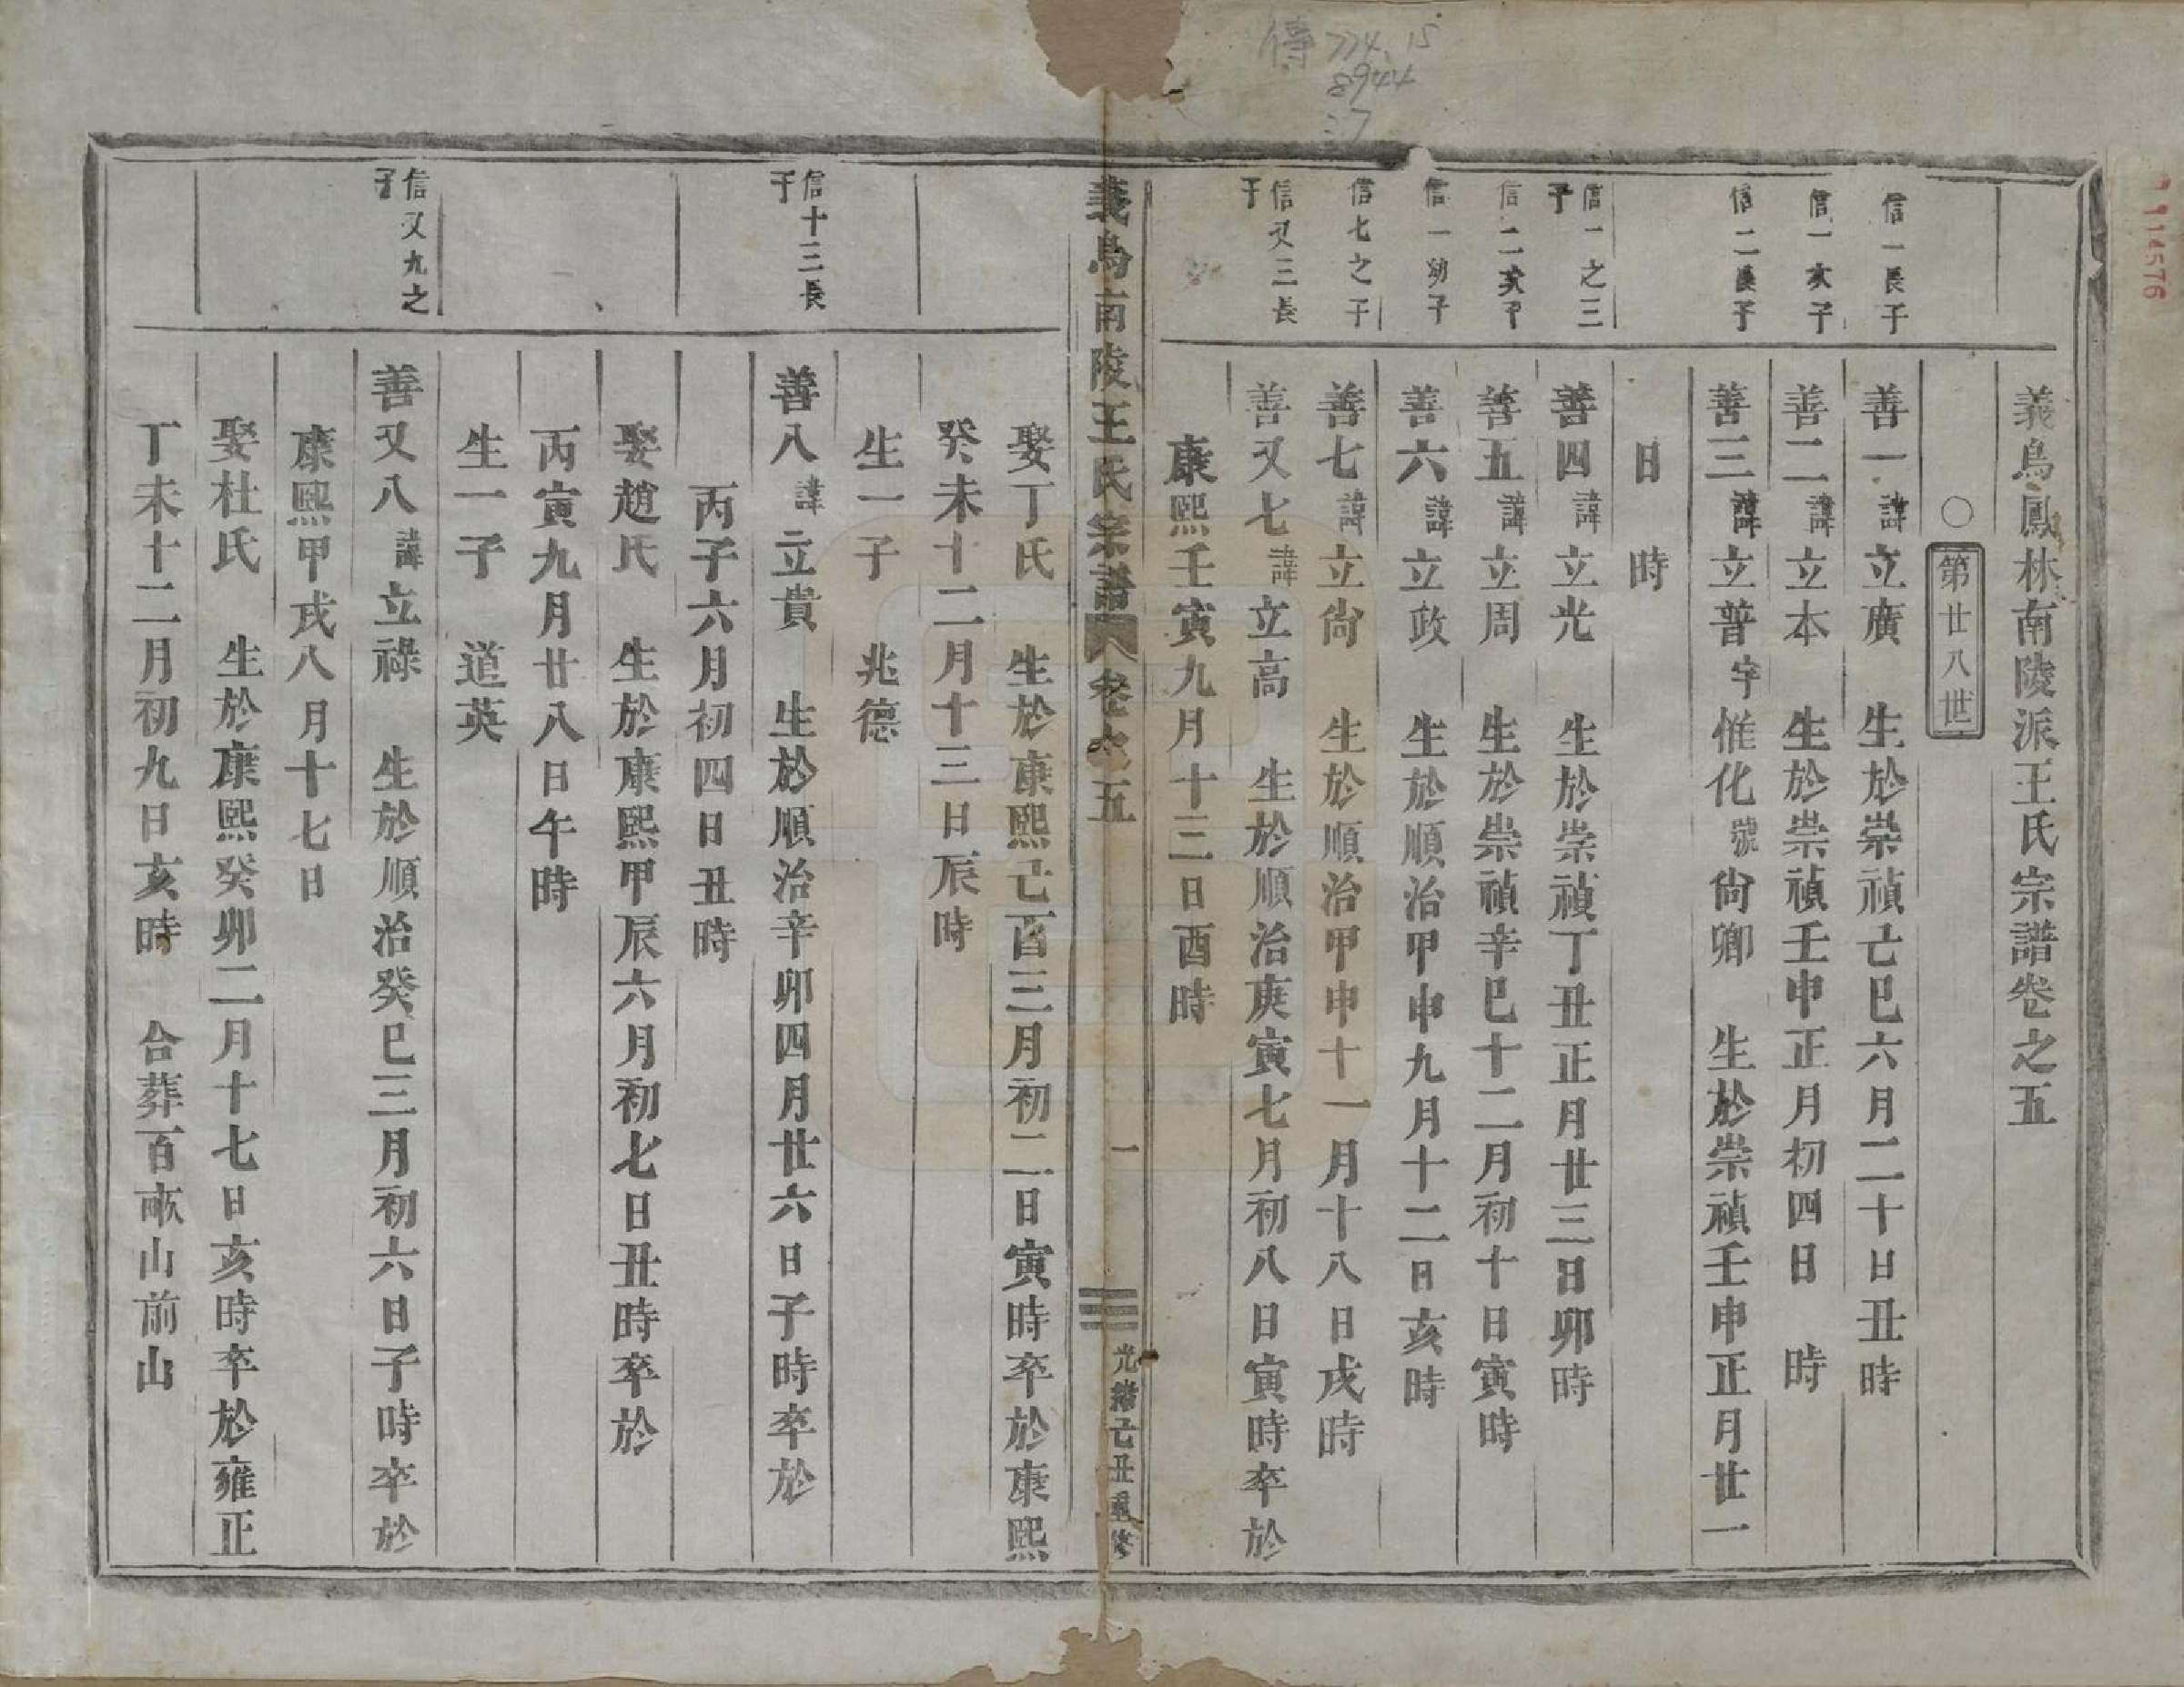 傳 774.15
8944
:7
114576
義烏鳳林南陵派王氏宗譜卷之五
○第廿八世
信一長子
善一諱立廣 生於崇禎己巳六月二十日丑時
信一次子
善二諱立本 生於崇禎壬申正月初四日 時
信二長子
善三諱立普字惟化號尙卿 生於崇禎壬申正月廿一
日 時
信一之三子
善四諱立光 生於崇禎丁丑正月廿三日卯時
信二次子
善五諱立周 生於崇禎辛巳十二月初十日寅時
信一幼子
善六諱立政 生於順治甲申九月十二日亥時
信七之子
善七諱立尙 生於順治甲申十一月十八日戌時
信又三長子
善又七諱立高 生於順治庚寅七月初八日寅時卒於
康熙壬寅九月十三日酉時
義烏南陵王氏宗譜 卷之五 一 光緒己丑重修
娶丁氏 生於康熙己酉三月初二日寅時卒於康熙
癸未十二月十三日辰時
生一子 兆德
信十三長子
善八諱立貴 生於順治辛卯四月廿六日子時卒於
丙子六月初四日丑時
娶趙氏 生於康熙甲辰六月初七日丑時卒於
丙寅九月廿八日午時
生一子 道英
信又九之子
善又八諱立祿 生於順治癸巳三月初六日子時卒於
康熙甲戌八月十七日
娶杜氏 生於康熙癸卯二月十七日亥時卒於雍正
丁未十二月初九日亥時 合葬百畝山前山